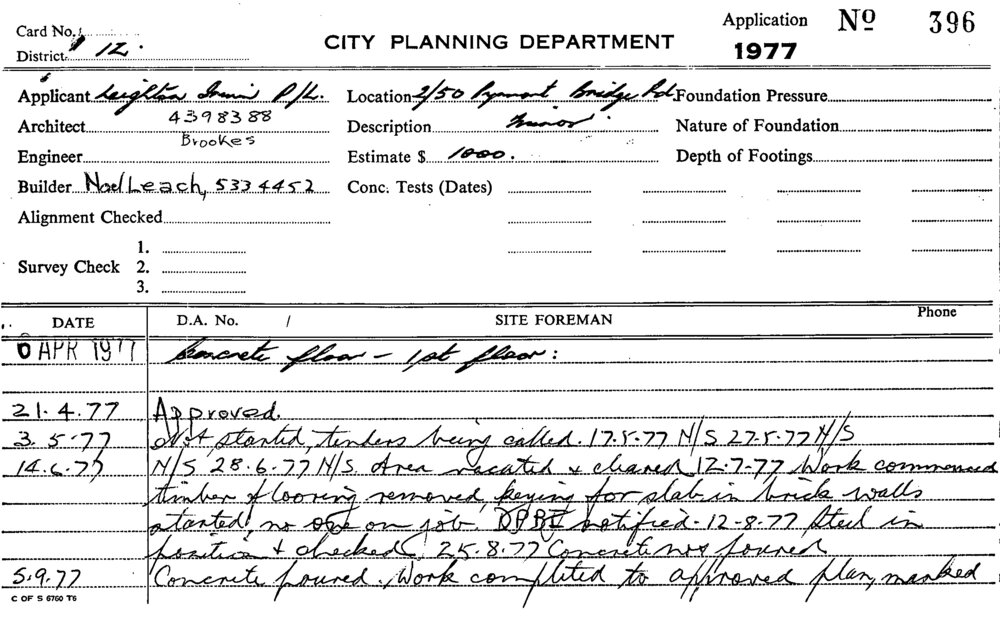 Card No.
District 12.
CITY PLANNING DEPARTMENT
Application Nº 396
1977
Applicant Leighton Irwin P/L.
Location 2/50 Pyrmont Bridge Rd.
Foundation Pressure
4398388
Architect
Description Minor
Nature of Foundation
Brookes
Engineer
Estimate $ 1000.
Depth of Footings
Builder Noel Leach, 533 4452
Conc. Tests (Dates)
Alignment Checked
Survey Check
1.
2.
3.
DATE D.A. No. / SITE FOREMAN Phone
APR 1977 Concrete floor - 1st floor:
21.4.77 Approved.
3.5.77 Not started, tenders being called. 17.5.77 N/S 27.5.77 N/S
14.6.77 N/S 28.6.77 N/S. Area vacated & cleared 12.7.77 Work commenced
timber flooring removed, keying for slab in brick walls
started no one on job. notified - 12-8.77 Steel in
position & checked 25.8.77 Concrete not poured
5.9.77 Concrete poured. Work completed to approved plan, marked
C OF S 6760 T6